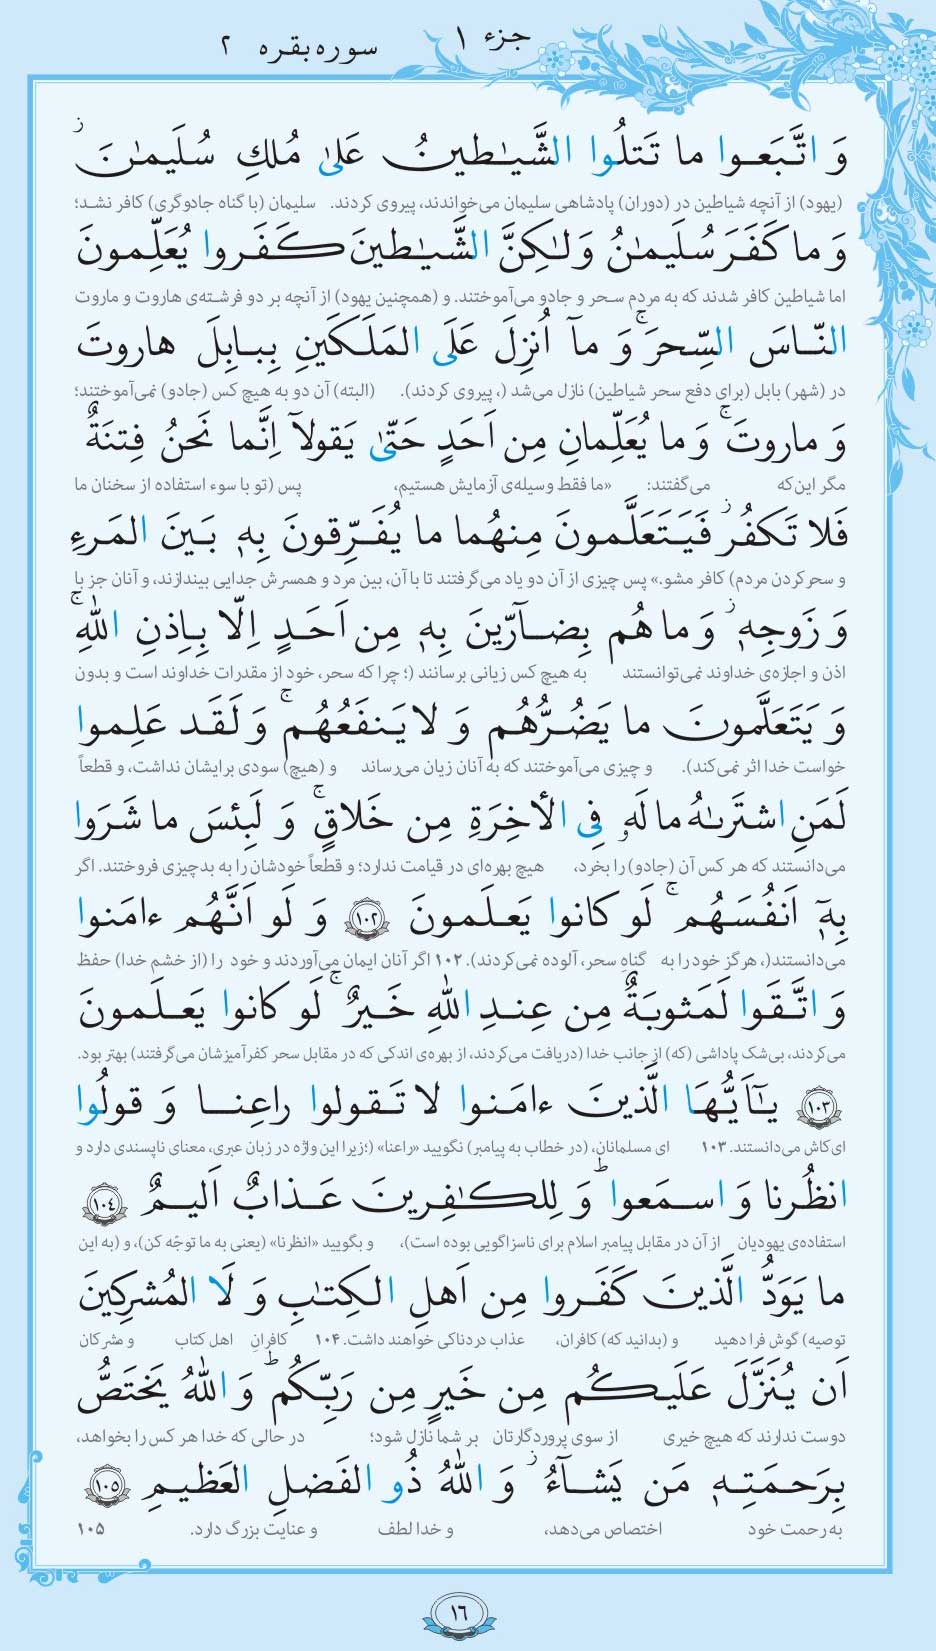 جزء ۱
سوره بقره ۲
وَ اتَّبَعوا ما تَتلُوا الشَّیـٰطینُ عَلیٰ مُلکِ سُلَیمـٰنَ ز
(یهود) از آنچه شیاطین در (دوران) پادشاهی سلیمان می‌خواندند، پیروی کردند. سلیمان (با گناه جادوگری) کافر نشد؛
وَ ما کَفَرَ سُلَیمـٰنُ وَلـٰکِنَّ الشَّیـٰطینَ کَفَروا یُعَلِّمونَ
اما شیاطین کافر شدند که به مردم سحر و جادو می‌آموختند. و (همچنین یهود) از آنچه بر دو فرشته‌ی هاروت و ماروت
النّاسَ السِّحرَ ۚ وَ مآ اُنزِلَ عَلَی المَلَکَینِ بِبابِلَ هاروتَ
در (شهر) بابل (برای دفع سحر شیاطین) نازل می‌شد (، پیروی کردند). (البته) آن دو به هیچ کس (جادو) نمی‌آموختند؛
وَ ماروتَ ۚ وَ ما یُعَلِّمانِ مِن اَحَدٍ حَتّیٰ یَقولاۤ اِنَّما نَحنُ فِتنَةٌ
مگر این‌که می‌گفتند: «ما فقط وسیله‌ی آزمایش هستیم، پس (تو با سوء استفاده از سخنان ما
فَلا تَکفُر ز فَیَتَعَلَّمونَ مِنهُما ما یُفَرِّقونَ بِهٖ بَینَ المَرءِ
و سحرکردن مردم) کافر مشو.» پس چیزی از آن دو یاد می‌گرفتند تا با آن، بین مرد و همسرش جدایی بیندازند، و آنان جز با
وَ زَوجِهٖ ز وَ ما هُم بِضاۤرّینَ بِهٖ مِن اَحَدٍ اِلّا بِاِذنِ اللهِ ۚ
اذن و اجازه‌ی خداوند نمی‌توانستند به هیچ کس زیانی برسانند (؛ چرا که سحر، خود از مقدرات خداوند است و بدون
وَ یَتَعَلَّمونَ ما یَضُرُّهُم وَ لا یَنفَعُهُم ۚ وَ لَقَد عَلِموا
خواست خدا اثر نمی‌کند). و چیزی می‌آموختند که به آنان زیان می‌رساند و (هیچ) سودی برایشان نداشت، و قطعاً
لَمَنِ اشتَرىٰهُ ما لَهٗ فِی الأخِرَةِ مِن خَلاقٍ ۚ وَ لَبِئسَ ما شَرَوا
می‌دانستند که هر کس آن (جادو) را بخرد، هیچ بهره‌ای در قیامت ندارد؛ و قطعاً خودشان را به بدچیزی فروختند. اگر
بِهٖۤ اَنفُسَهُم ۚ لَو کانوا یَعلَمونَ ۱۰۲ وَ لَو اَنَّهُم ءامَنوا
می‌دانستند(، هرگز خود را به گناهِ سحر، آلوده نمی‌کردند). ۱۰۲ اگر آنان ایمان می‌آوردند و خود را (از خشمِ خدا) حفظ
وَ اتَّقَوا لَمَثوبَةٌ مِن عِندِ اللهِ خَیرٌ ۚ لَو کانوا یَعلَمونَ
می‌کردند، بی‌شک پاداشی (که) از جانب خدا (دریافت می‌کردند، از بهره‌ی اندکی که در مقابل سحر کفرآمیزشان می‌گرفتند) بهتر بود.
۱۰۳ یـٰۤاَیُّهَا الَّذینَ ءامَنوا لا تَقولوا راعِنا وَ قولُوا
ای کاش می‌دانستند. ۱۰۳ ای مسلمانان، (در خطاب به پیامبر) نگویید «راعنا» (؛ زیرا این واژه در زبان عبری، معنای ناپسندی دارد و
انظُرنا وَ اسمَعوا ؕ وَ لِلکـٰفِرینَ عَذابٌ اَلیمٌ ۱۰۴
استفاده‌ی یهودیان از آن در مقابل پیامبر اسلام برای ناسزاگویی بوده است)، و بگویید «انظرنا» (یعنی به ما توجّه کن)، و (به این
ما یَوَدُّ الَّذینَ کَفَروا مِن اَهلِ الکِتـٰبِ وَ لَا المُشرِکینَ
توصیه) گوش فرا دهید و (بدانید که) کافران، عذاب دردناکی خواهند داشت. ۱۰۴ کافرانِ اهل کتاب و مشرکان
اَن یُنَزَّلَ عَلَیکُم مِن خَیرٍ مِن رَبِّکُم ؕ وَ اللهُ یَختَصُّ
دوست ندارند که هیچ خیری از سوی پروردگارتان بر شما نازل شود؛ در حالی که خدا هر کس را بخواهد،
بِرَحمَتِهٖ مَن یَشاۤءُ ز وَ اللهُ ذُو الفَضلِ العَظیمِ ۱۰۵
به رحمت خود اختصاص می‌دهد، و خدا لطف و عنایت بزرگ دارد. ۱۰۵
۱۶